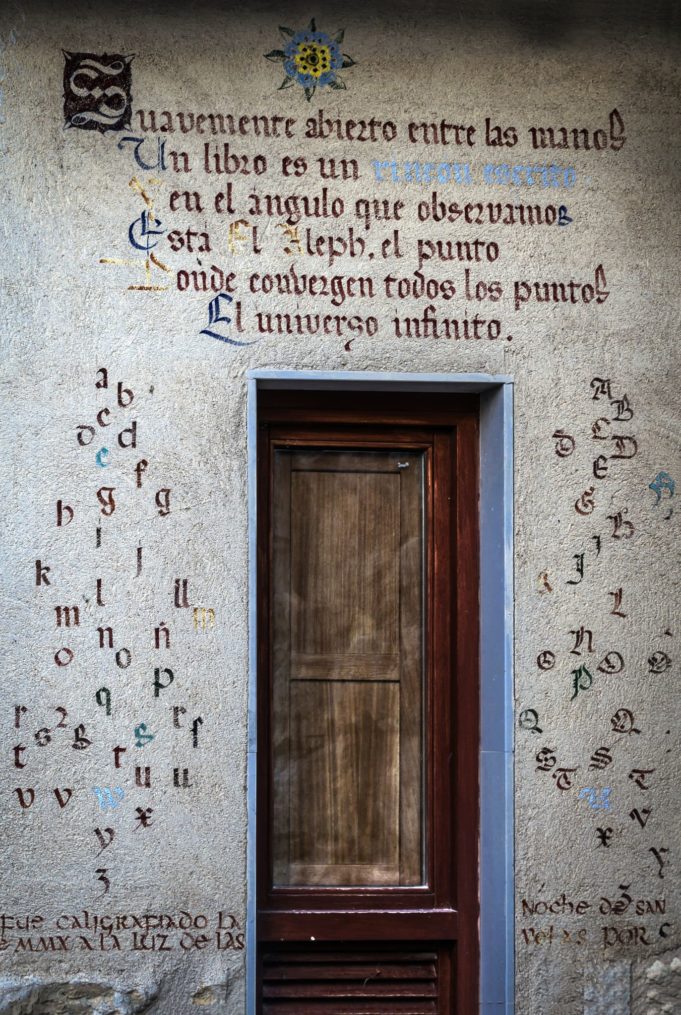 Suavemente abierto entre las manos
Un libro es un rincon
Y en el ángulo que observamos
Esta El Aleph, el punto
Donde convergen todos los puntos
El universo infinito.
a
b
c
d
e
f
g g
h
i
j
k
l ll
m m
n ñ
o o
p
q
r s 2 s s r s
t t
u u
v v w
x
y
z
A
B
C
D D
E
G
H
I
J
L
N
O O O
P
Q Q
S S
T T
V
X
Y
Z
FUE CALIGRAFIADO LA NOCHE DE SAN
E MMX A LA LUZ DE LAS VELAS POR C